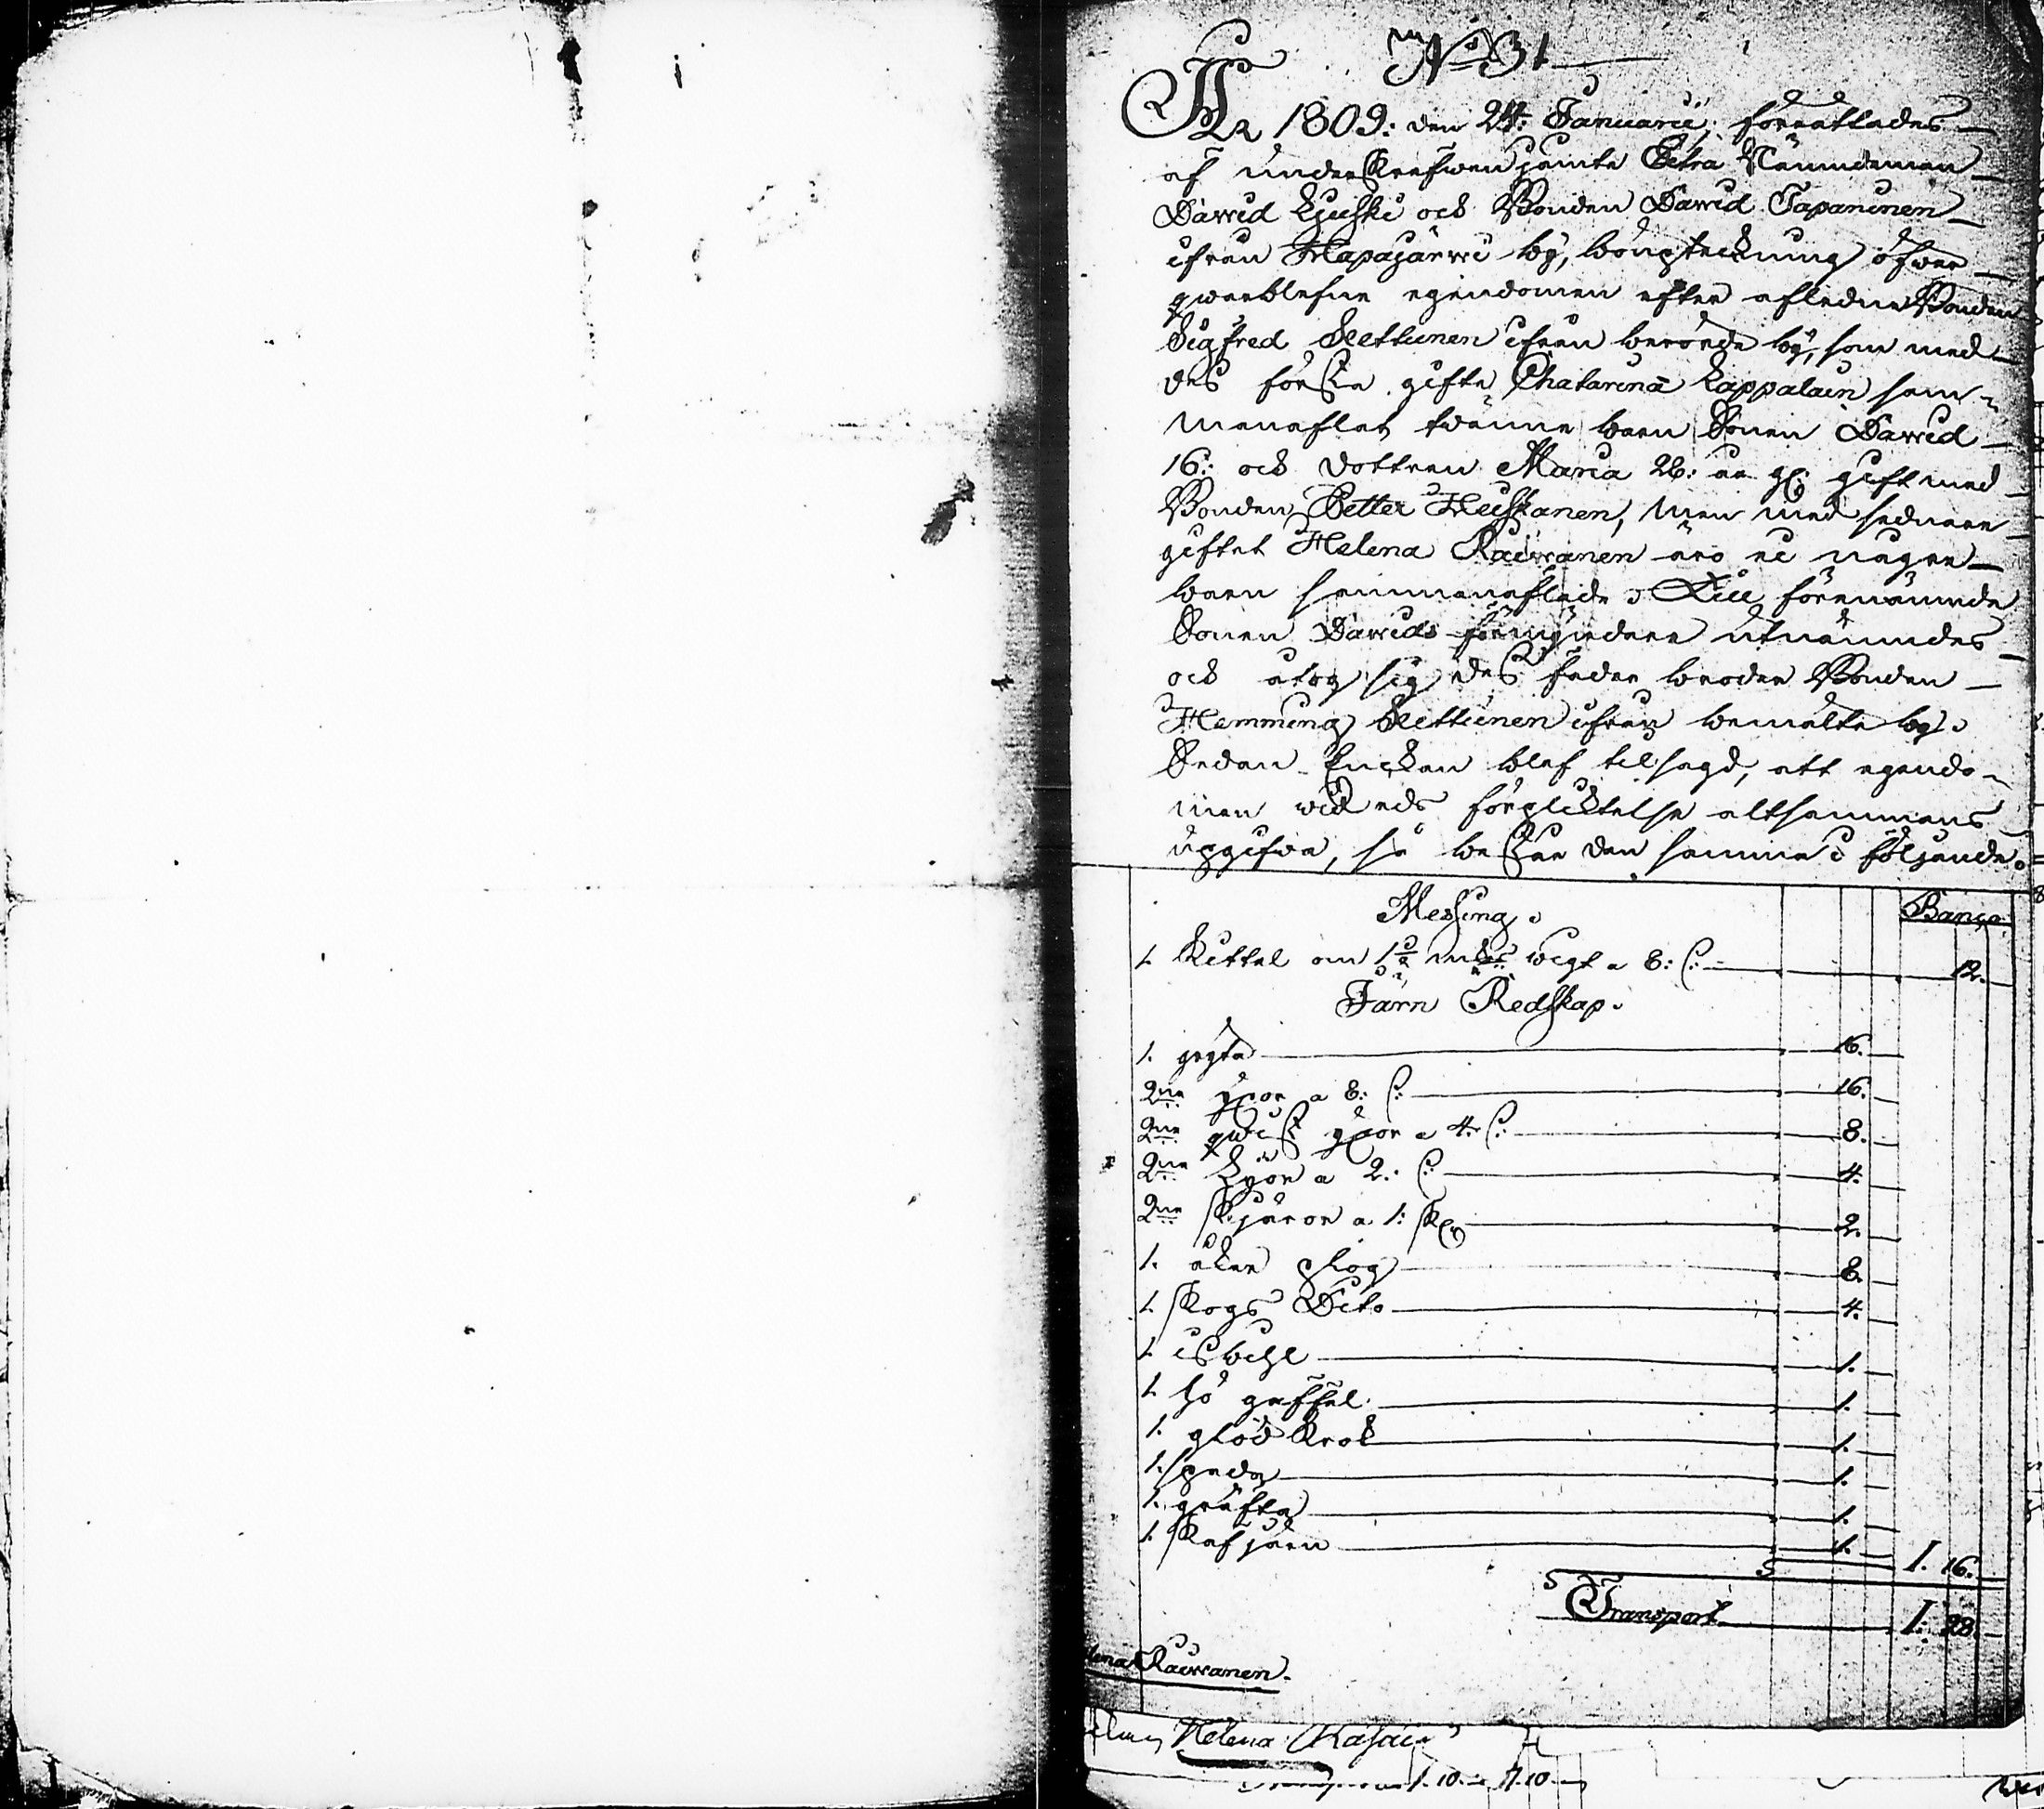 No 31
År 1809: den 24: Januarii, förrättades
af underskrefwen jämte Extra Nämndeman
Dawid Kjiski och Bonden Dawid Tapaninen
ifrån Hapajärwi by, bouptekning öfwer
qwarblefne egendomen efter aflednе Bonden
Sigfred Kettunen ifrån berörde by, som med
des förste gifte Chatarina Kappalain sam-
manaflat twänne barn Sonen Dawid
16: och dottren Maria 26: år gl: gift med
Bonden Petter Heiskanen, men med sednare
giftet Helena Räisänen äro ei några
barn sammanaflade. Till förenämnde
Sonen Dawids förmyndare utnämndes
och åtog sig des fader broder Bonden
Hemming Kettunen ifrån bemälte by.
Sedan Enckan blef tilsagd, att egendo-
men wid eds förpliktelse altsammans
upgifwa, så består den samma i följande.
Messing. Banco
1. Kittel om 1½ wigt a 8: s: 12.
Järn Redskap.
1. gryta 16.
2ne yxor a 8: s: 16.
2ne qwist yxor a 4: s: 8.
2ne Lyor a 2: s: 4.
2ne skjäror a 1: sk 2.
1. åker plog 8.
1. skogs Dito 4.
1. isbihl 1.
1. hö gaffel 1.
1. glöd krok 1.
1. spada 1.
1. gräfta 1.
1. skaf järn 1. 1. 16.
Transport 1. 28.
Räisänen.
Helena
1.10. 1.10